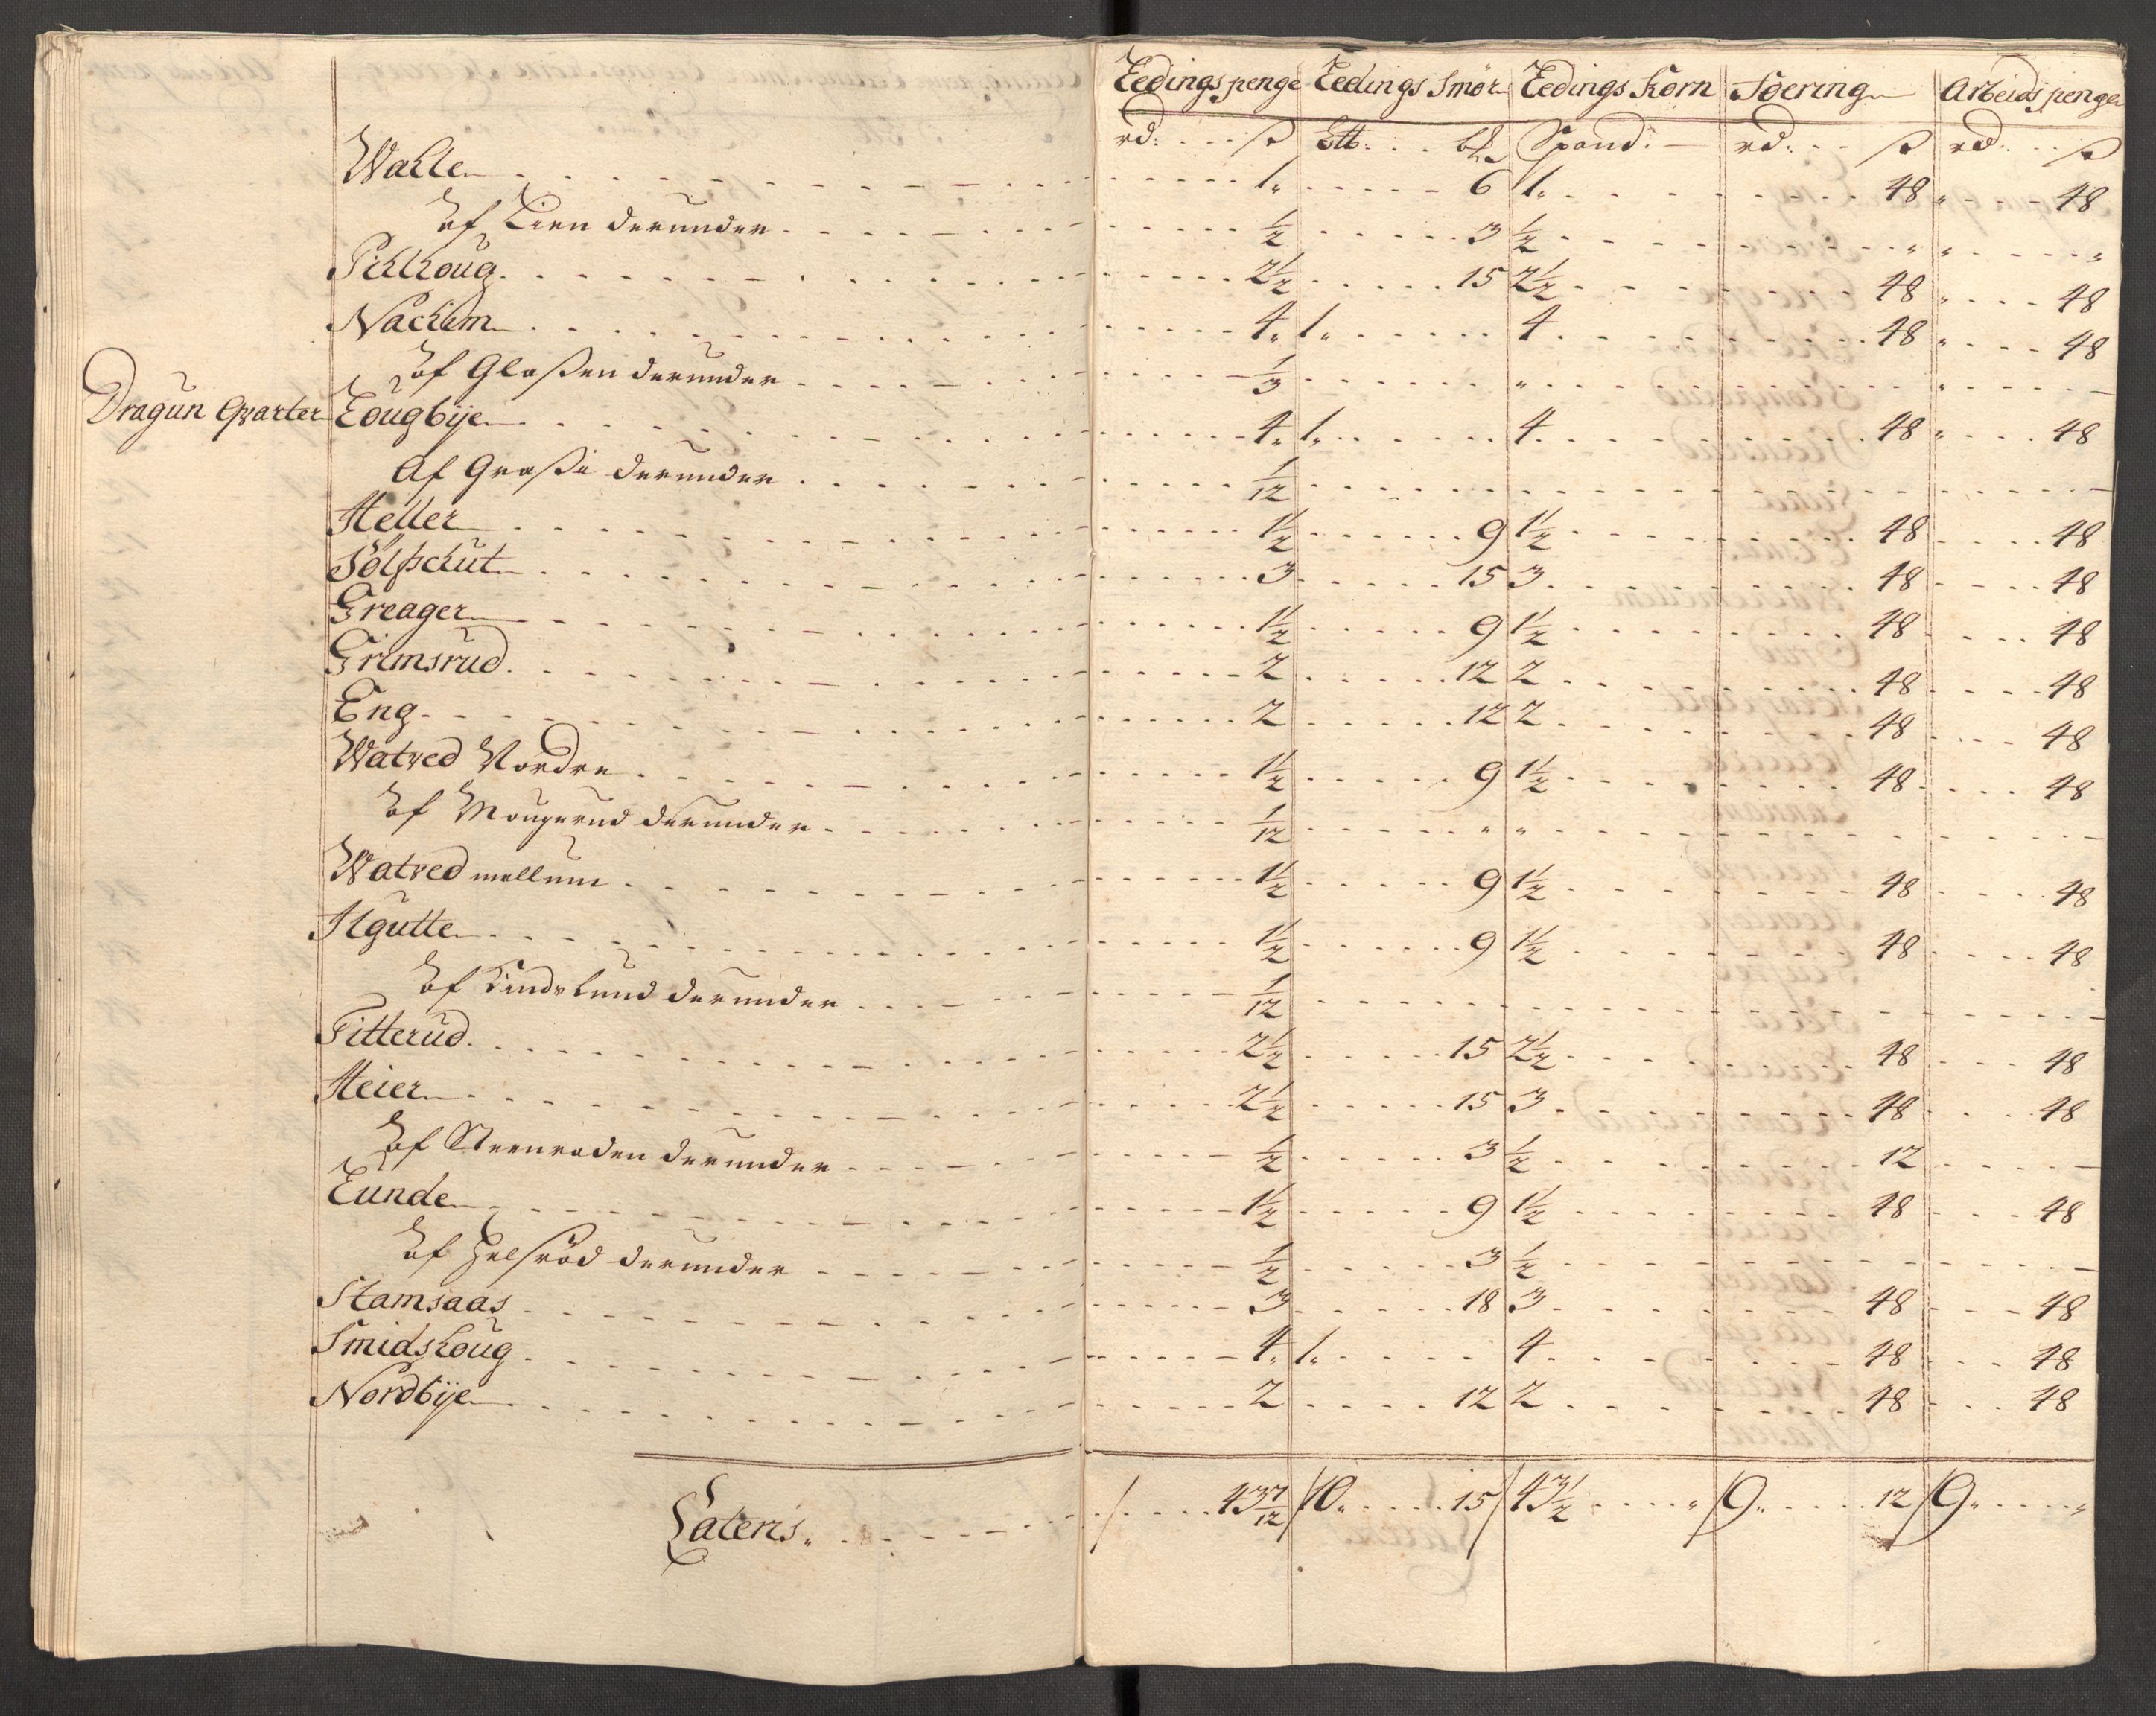 Ledings penge | Ledings Smør | Ledings Korn | Foering | Arbeids penge
rd: ß | Ltt: | Spand: | rd: ß | rd: ß
Walle 1 | 6 | 1 | 48 | 48
af Lien derunder ½ | 3 | ½
Pihlhoug 2½ | 15 | 2½ | 48 | 48
Nachim 4 | 1 | 4 | 48 | 48
af Glaßen derunder ⅓
Dragun Qvarter Lougbÿe 4 | 1 | 4 | 48 | 48
Af Graßi derunder 1/12
Heller 1½ | 9 | 1½ | 48 | 48
Sølfschut 3 | 15 | 3 | 48 | 48
Greager 1½ | 9 | 1½ | 48 | 48
Grimsrud 2 | 12 | 2 | 48 | 48
Eng 2 | 12 | 2 | 48 | 48
Watved Nordre 1½ | 9 | 1½ | 48 | 48
af Mougerud derunder 1/12
Watved mellum 1½ | 9 | 1½ | 48 | 48
Hgutte 1½ | 9 | 1½ | 48 | 48
af Lindslund derunder 1/12
Titterud 2½ | 15 | 2½ | 48 | 48
Heier 2½ | 15 | 3 | 48 | 48
af Steenroden derunder ½ | 3 | ½ | 12
Lunde 1½ | 9 | 1½ | 48 | 48
af Helsrød derunder ½ | 3 | ½
Stamsaas 3 | 18 | 3 | 48 | 48
Smidshoug 4 | 1 | 4 | 48 | 48
Nordbÿe 2 | 12 | 2 | 48 | 48
Lateris 43 7/12 | 10 15 | 43½ | 9 12 | 9